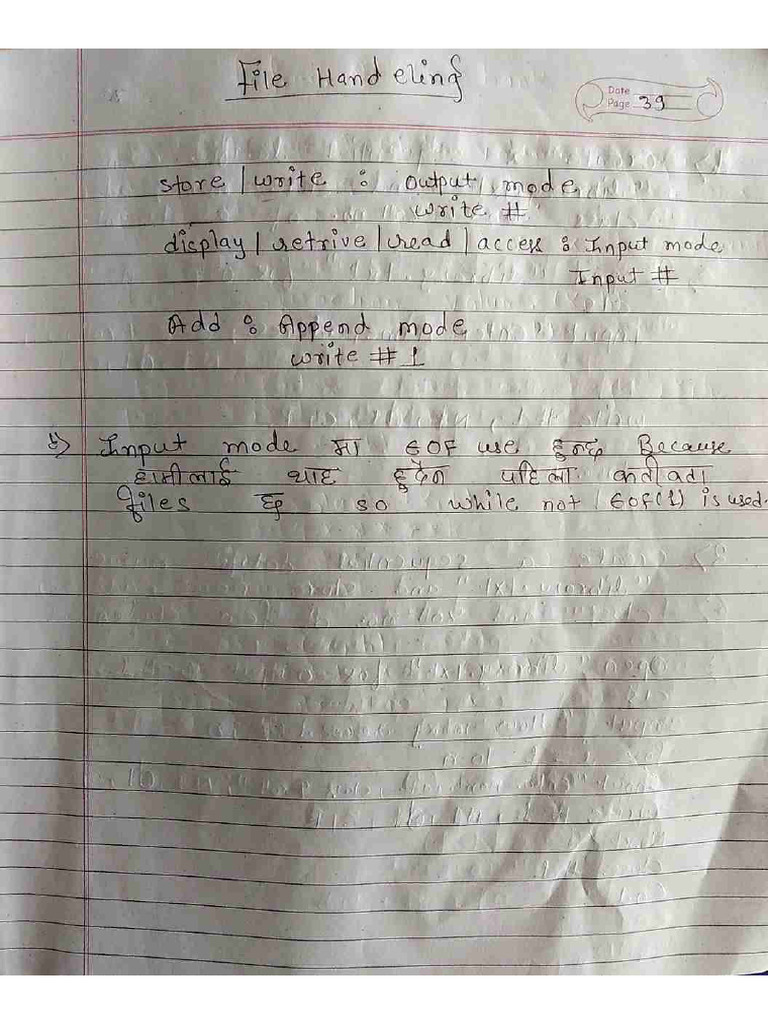 File Handeling
Date
Page 39
store / write : output mode
write #
display / retrive / read / access : Input mode
Input #
Add : Append mode
write # 1
Input mode मा EOF use हुन्छ Because
हामीलाई थाह हुदैन पहिला कतीवटा
files छ so while not EOF(1) is used.